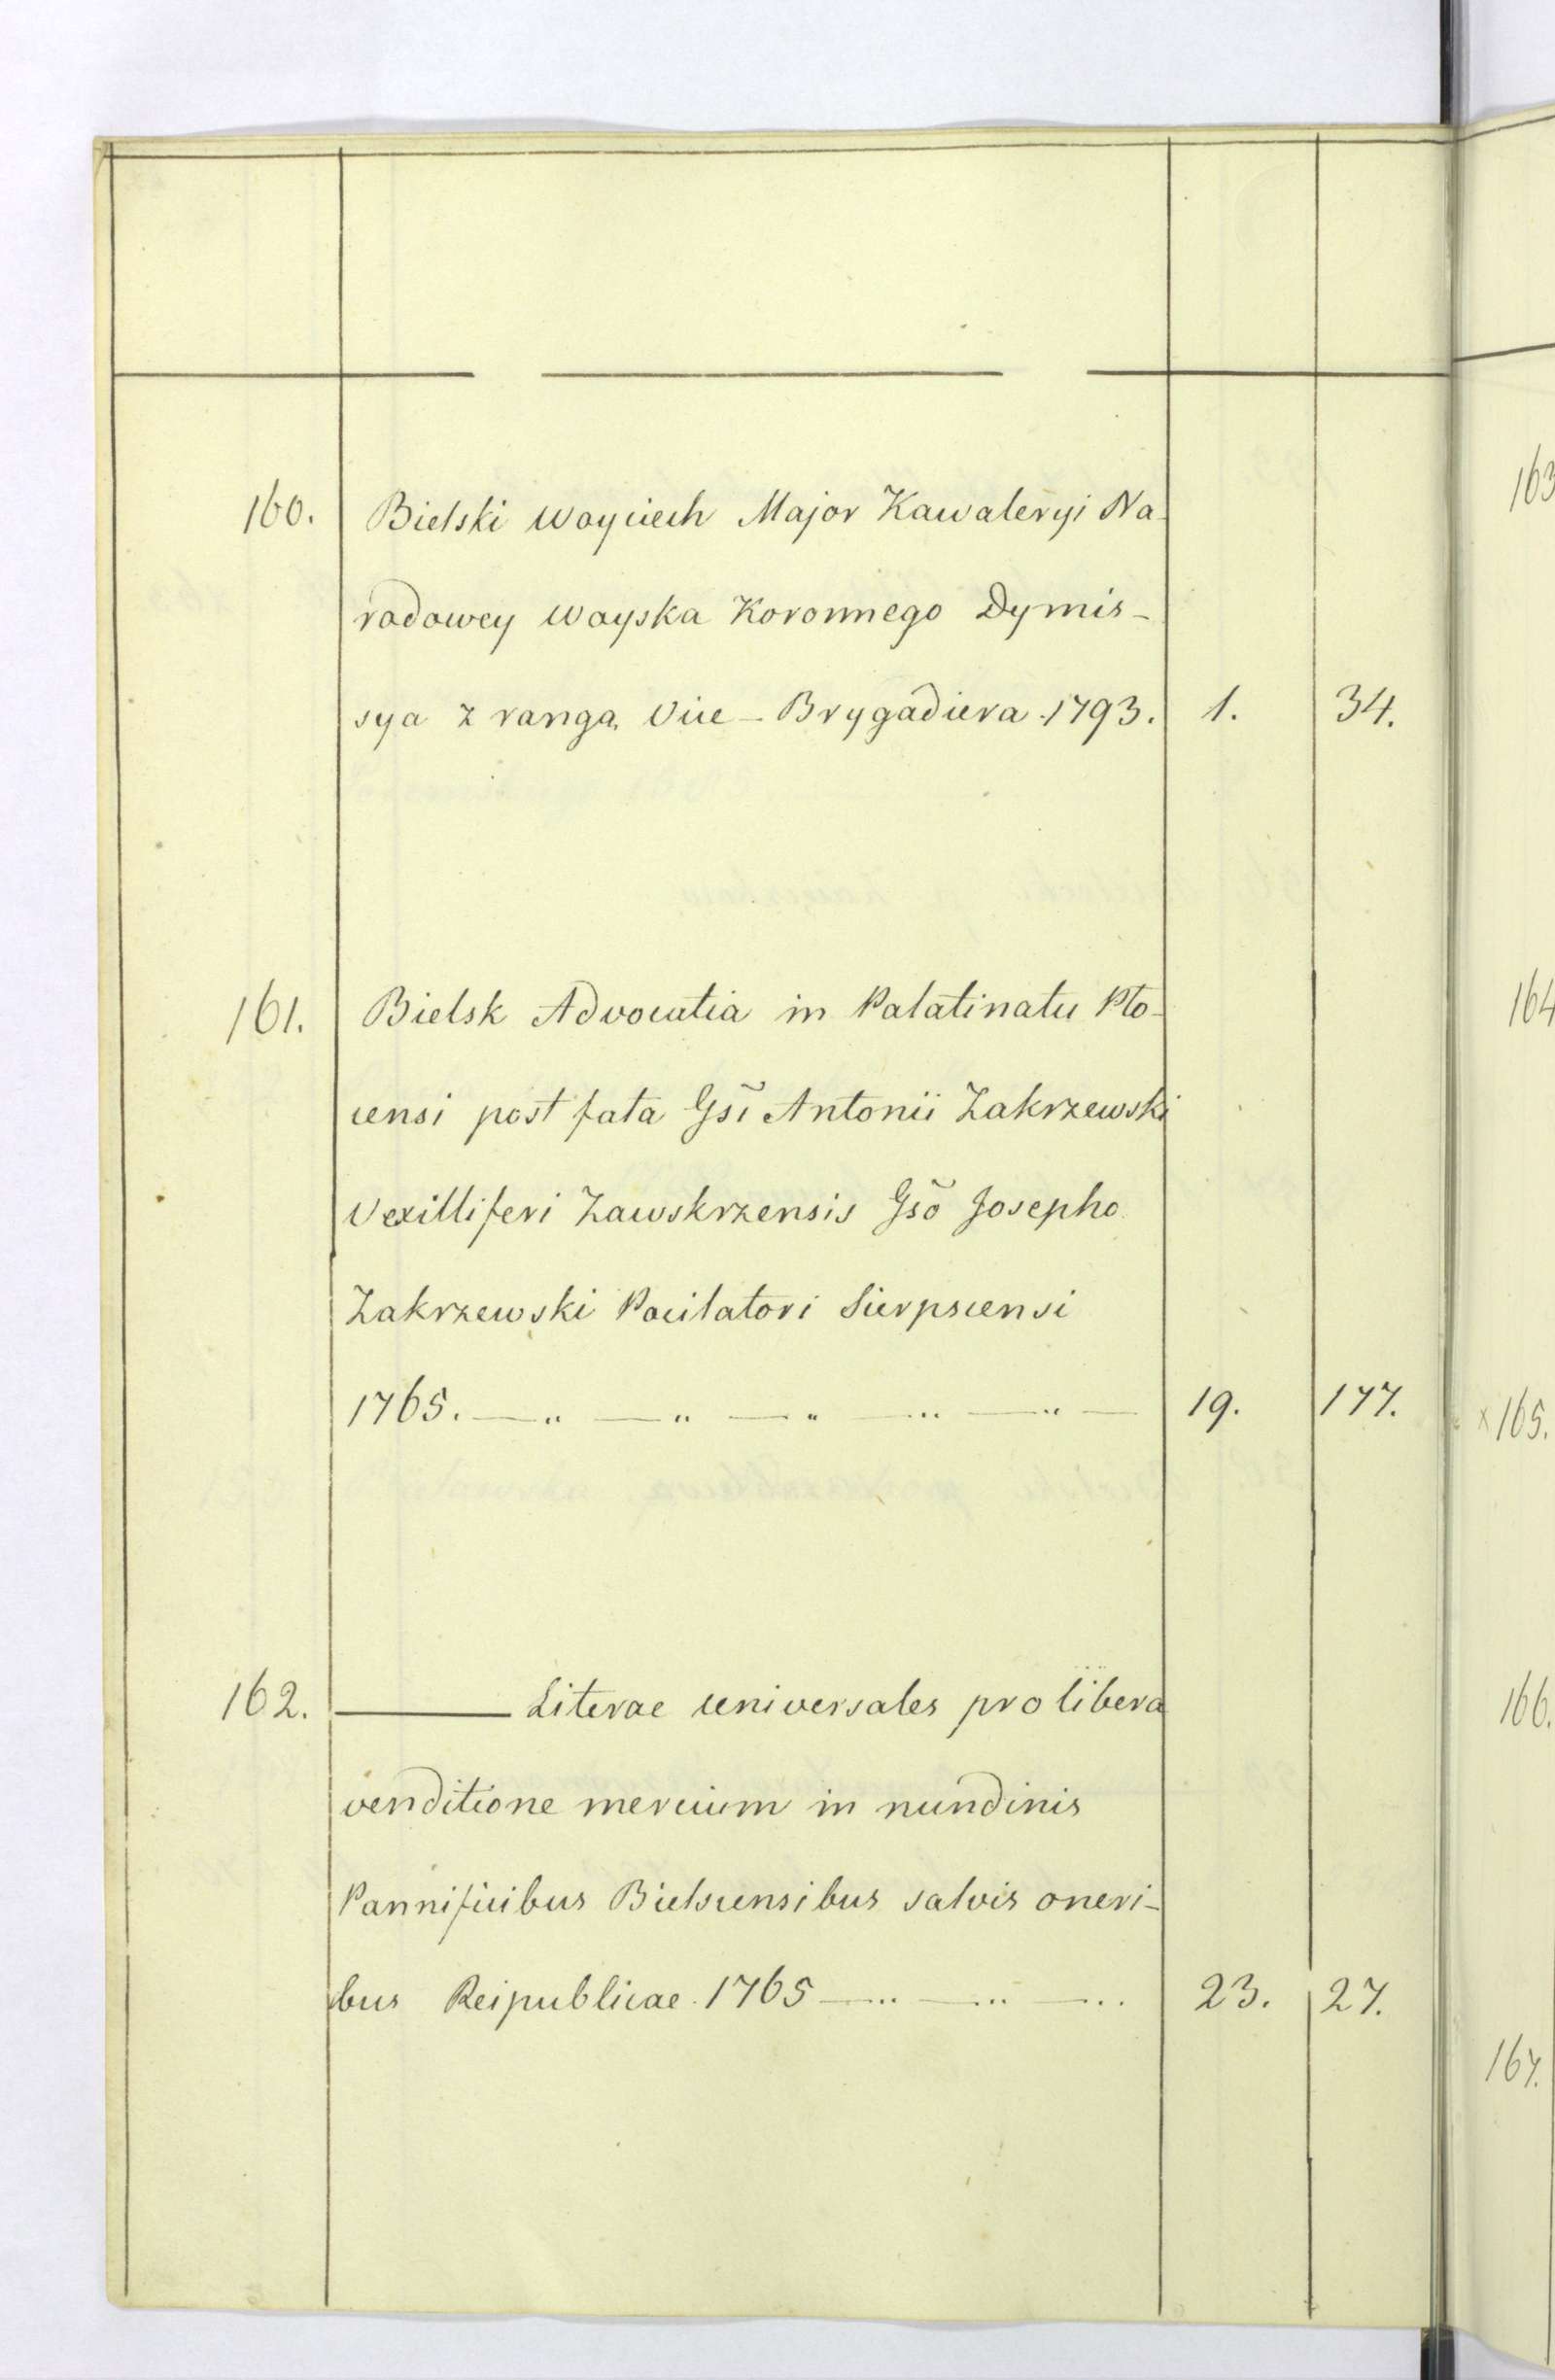 160. Bielski Woyciech Major Kawaleryi Na-
rodowey Woyska Koronnego Dymis-
sya z rangą Vice-Brygadiera 1793. 1. 34.
161. Bielsk Advocatia in Palatinatu Plo-
censi post fata Gsi Antonii Zakrzewski
Vexilliferi Zawskrzensis Gso Josepho
Zakrzewski Pocilatori Sierpscensi
1765. — " — " — " — " — " — 19. 177.
162. — Literae universales pro libera
venditione mercium in nundinis
Pannificibus Bielscensibus salvis oneri-
bus Reipublicae 1765 — " — " — " 23. 27.
163
164
× 165.
166.
167.